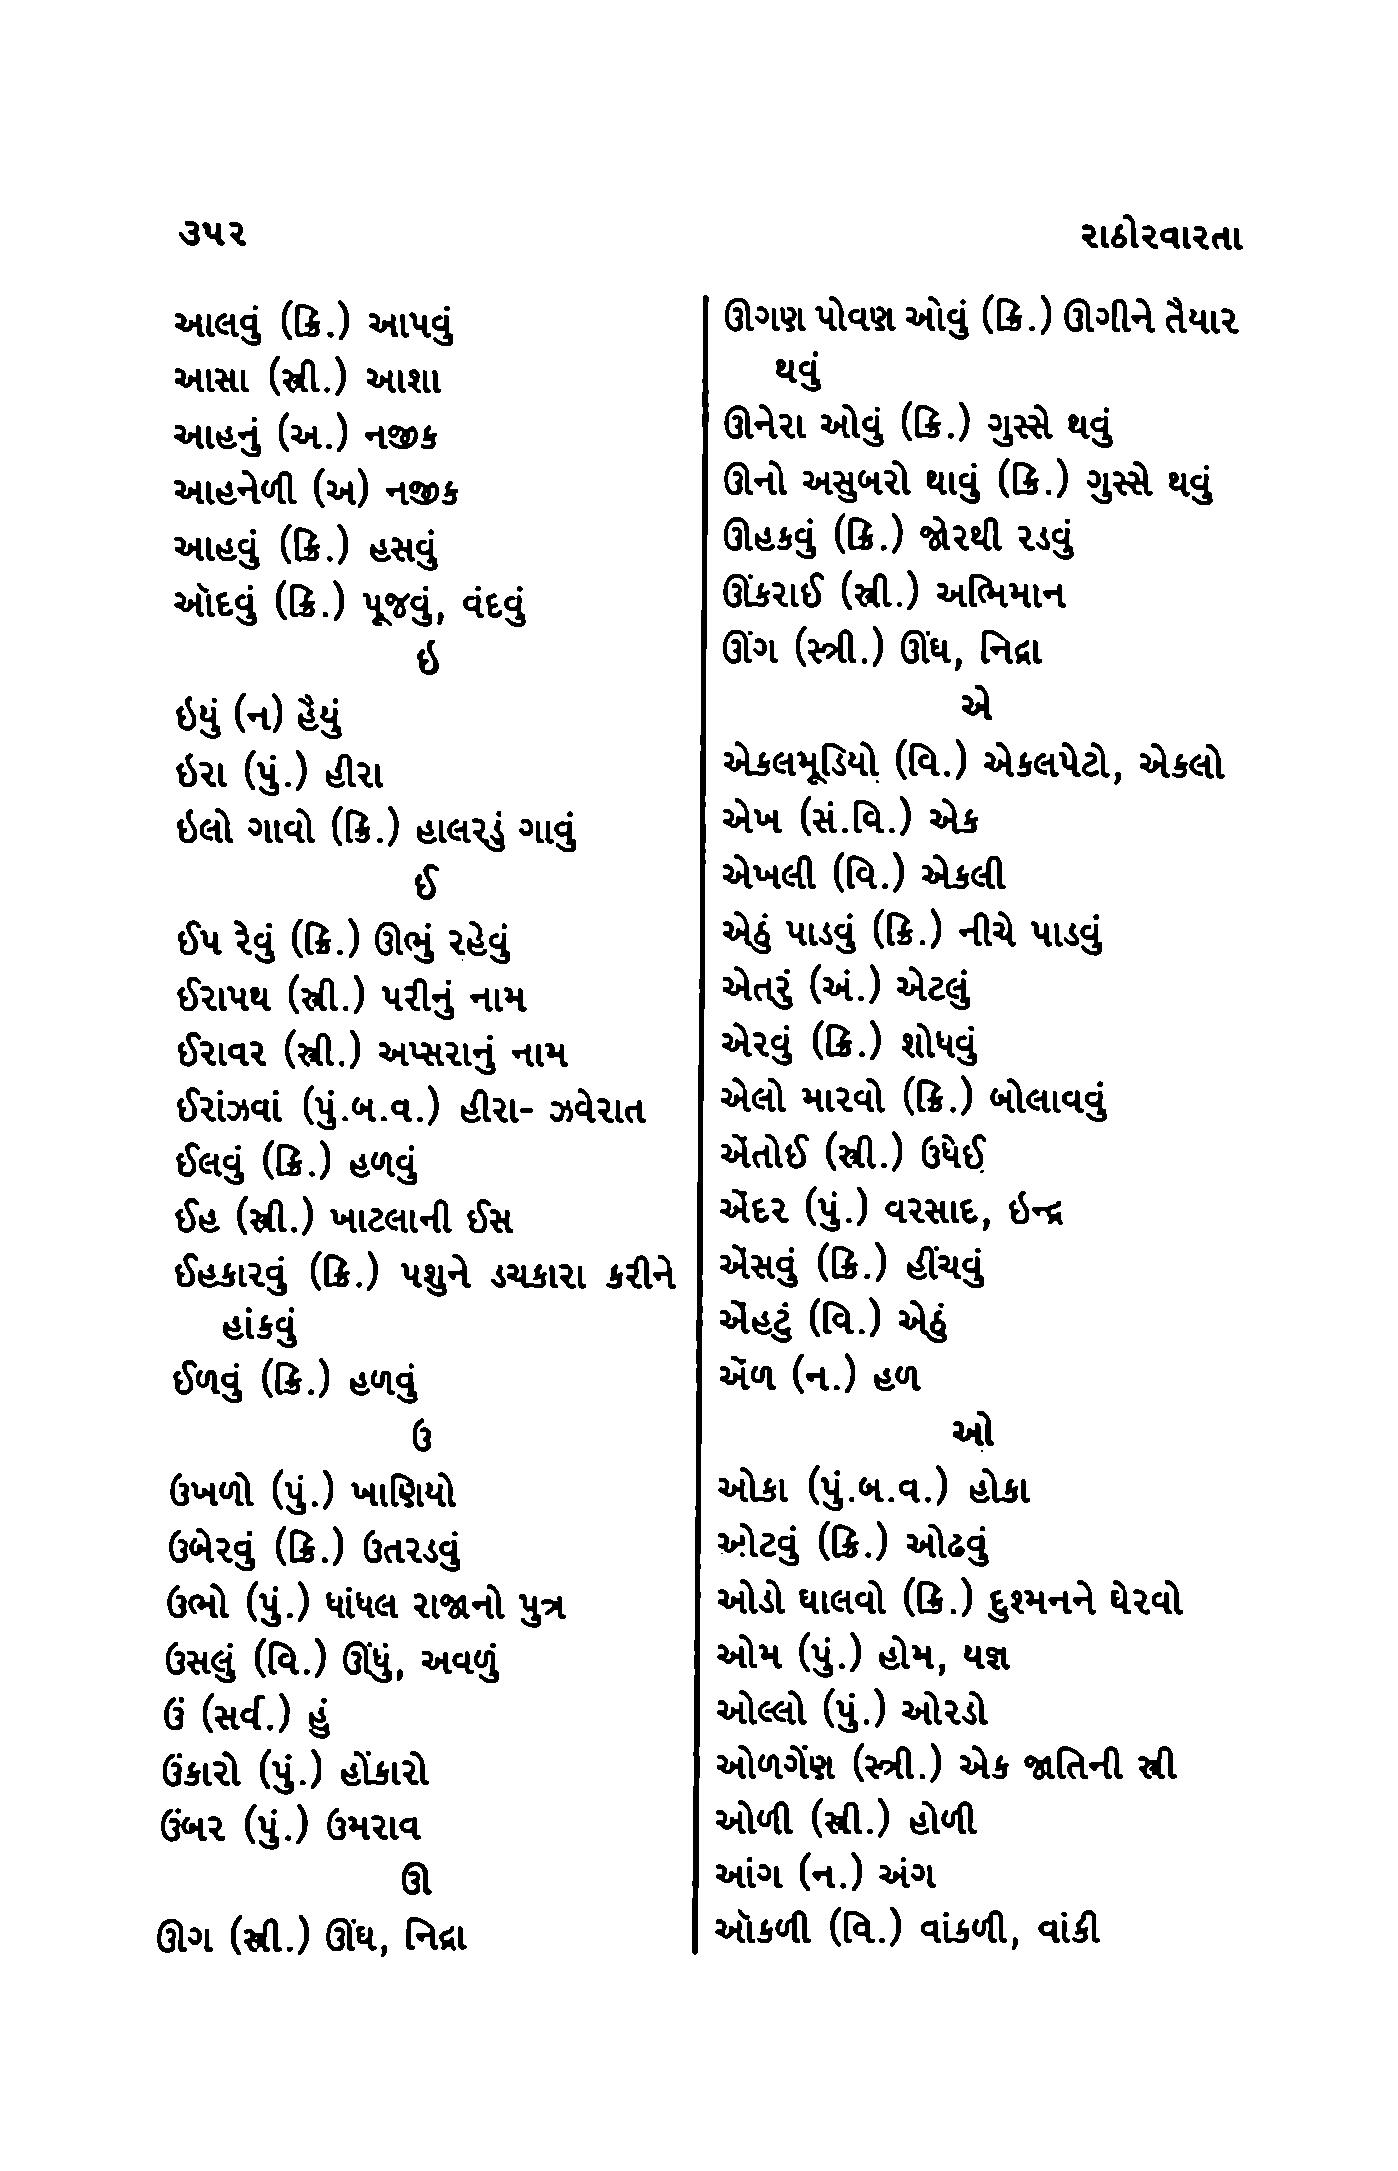 ૩૫૨
રાઠોરવારતા
આલવું (ક્રિ.) આપવું
આસા (સ્ત્રી.) આશા
આહનું (અ.) નજીક
આહનેળી (અ) નજીક
આહવું (ક્રિ.) હસવું
ઑદવું (ક્રિ.) પૂજવું, વંદવું
ઇ
ઇયું (ન) હૈયું
ઇરા (પું.) હીરા
ઇલો ગાવો (ક્રિ.) હાલરડું ગાવું
ઈ
ઈપ રેવું (ક્રિ.) ઊભું રહેવું
ઈરાપથ (સ્ત્રી.) પરીનું નામ
ઈરાવર (સ્ત્રી.) અપ્સરાનું નામ
ઈરાંઝવાં (પું.બ.વ.) હીરા- ઝવેરાત
ઈલવું (ક્રિ.) હળવું
ઈહ (સ્ત્રી.) ખાટલાની ઈસ
ઈહકારવું (ક્રિ.) પશુને ડચકારા કરીને
હાંકવું
ઈળવું (ક્રિ.) હળવું
ઉ
ઉખળો (પું.) ખાણિયો
ઉબેરવું (ક્રિ.) ઉતરડવું
ઉભો (પું.) ધાંધલ રાજાનો પુત્ર
ઉસલું (વિ.) ઊંધું, અવળું
ઉં (સર્વ.) હું
ઉંકારો (પું.) હોંકારો
ઉંબર (પું.) ઉમરાવ
ઊ
ઊગ (સ્ત્રી.) ઊંઘ, નિદ્રા
ઊગણ પોવણ ઓવું (ક્રિ.) ઊગીને તૈયાર
થવું
ઊનેરા ઓવું (ક્રિ.) ગુસ્સે થવું
ઊનો અસુબરો થાવું (ક્રિ.) ગુસ્સે થવું
ઊહકવું (ક્રિ.) જોરથી રડવું
ઊંકરાઈ (સ્ત્રી.) અભિમાન
ઊંગ (સ્ત્રી.) ઊંઘ, નિદ્રા
એ
એકલમૂડિયો (વિ.) એકલપેટો, એકલો
એખ (સં.વિ.) એક
એખલી (વિ.) એકલી
એઠું પાડવું (ક્રિ.) નીચે પાડવું
એતરું (અં.) એટલું
એરવું (ક્રિ.) શોધવું
એલો મારવો (ક્રિ.) બોલાવવું
એંતોઈ (સ્ત્રી.) ઉધેઈ
એંદર (પું.) વરસાદ, ઇન્દ્ર
એંસવું (ક્રિ.) હીંચવું
એંહટું (વિ.) એઠું
એંળ (ન.) હળ
ઓ
ઓકા (પું.બ.વ.) હોકા
ઓટવું (ક્રિ.) ઓઢવું
ઓડો ઘાલવો (ક્રિ.) દુશ્મનને ઘેરવો
ઓમ (પું.) હોમ, યજ્ઞ
ઓલ્લો (પું.) ઓરડો
ઓળગેંણ (સ્ત્રી.) એક જાતિની સ્ત્રી
ઓળી (સ્ત્રી.) હોળી
આંગ (ન.) અંગ
ઑકળી (વિ.) વાંકળી, વાંકી